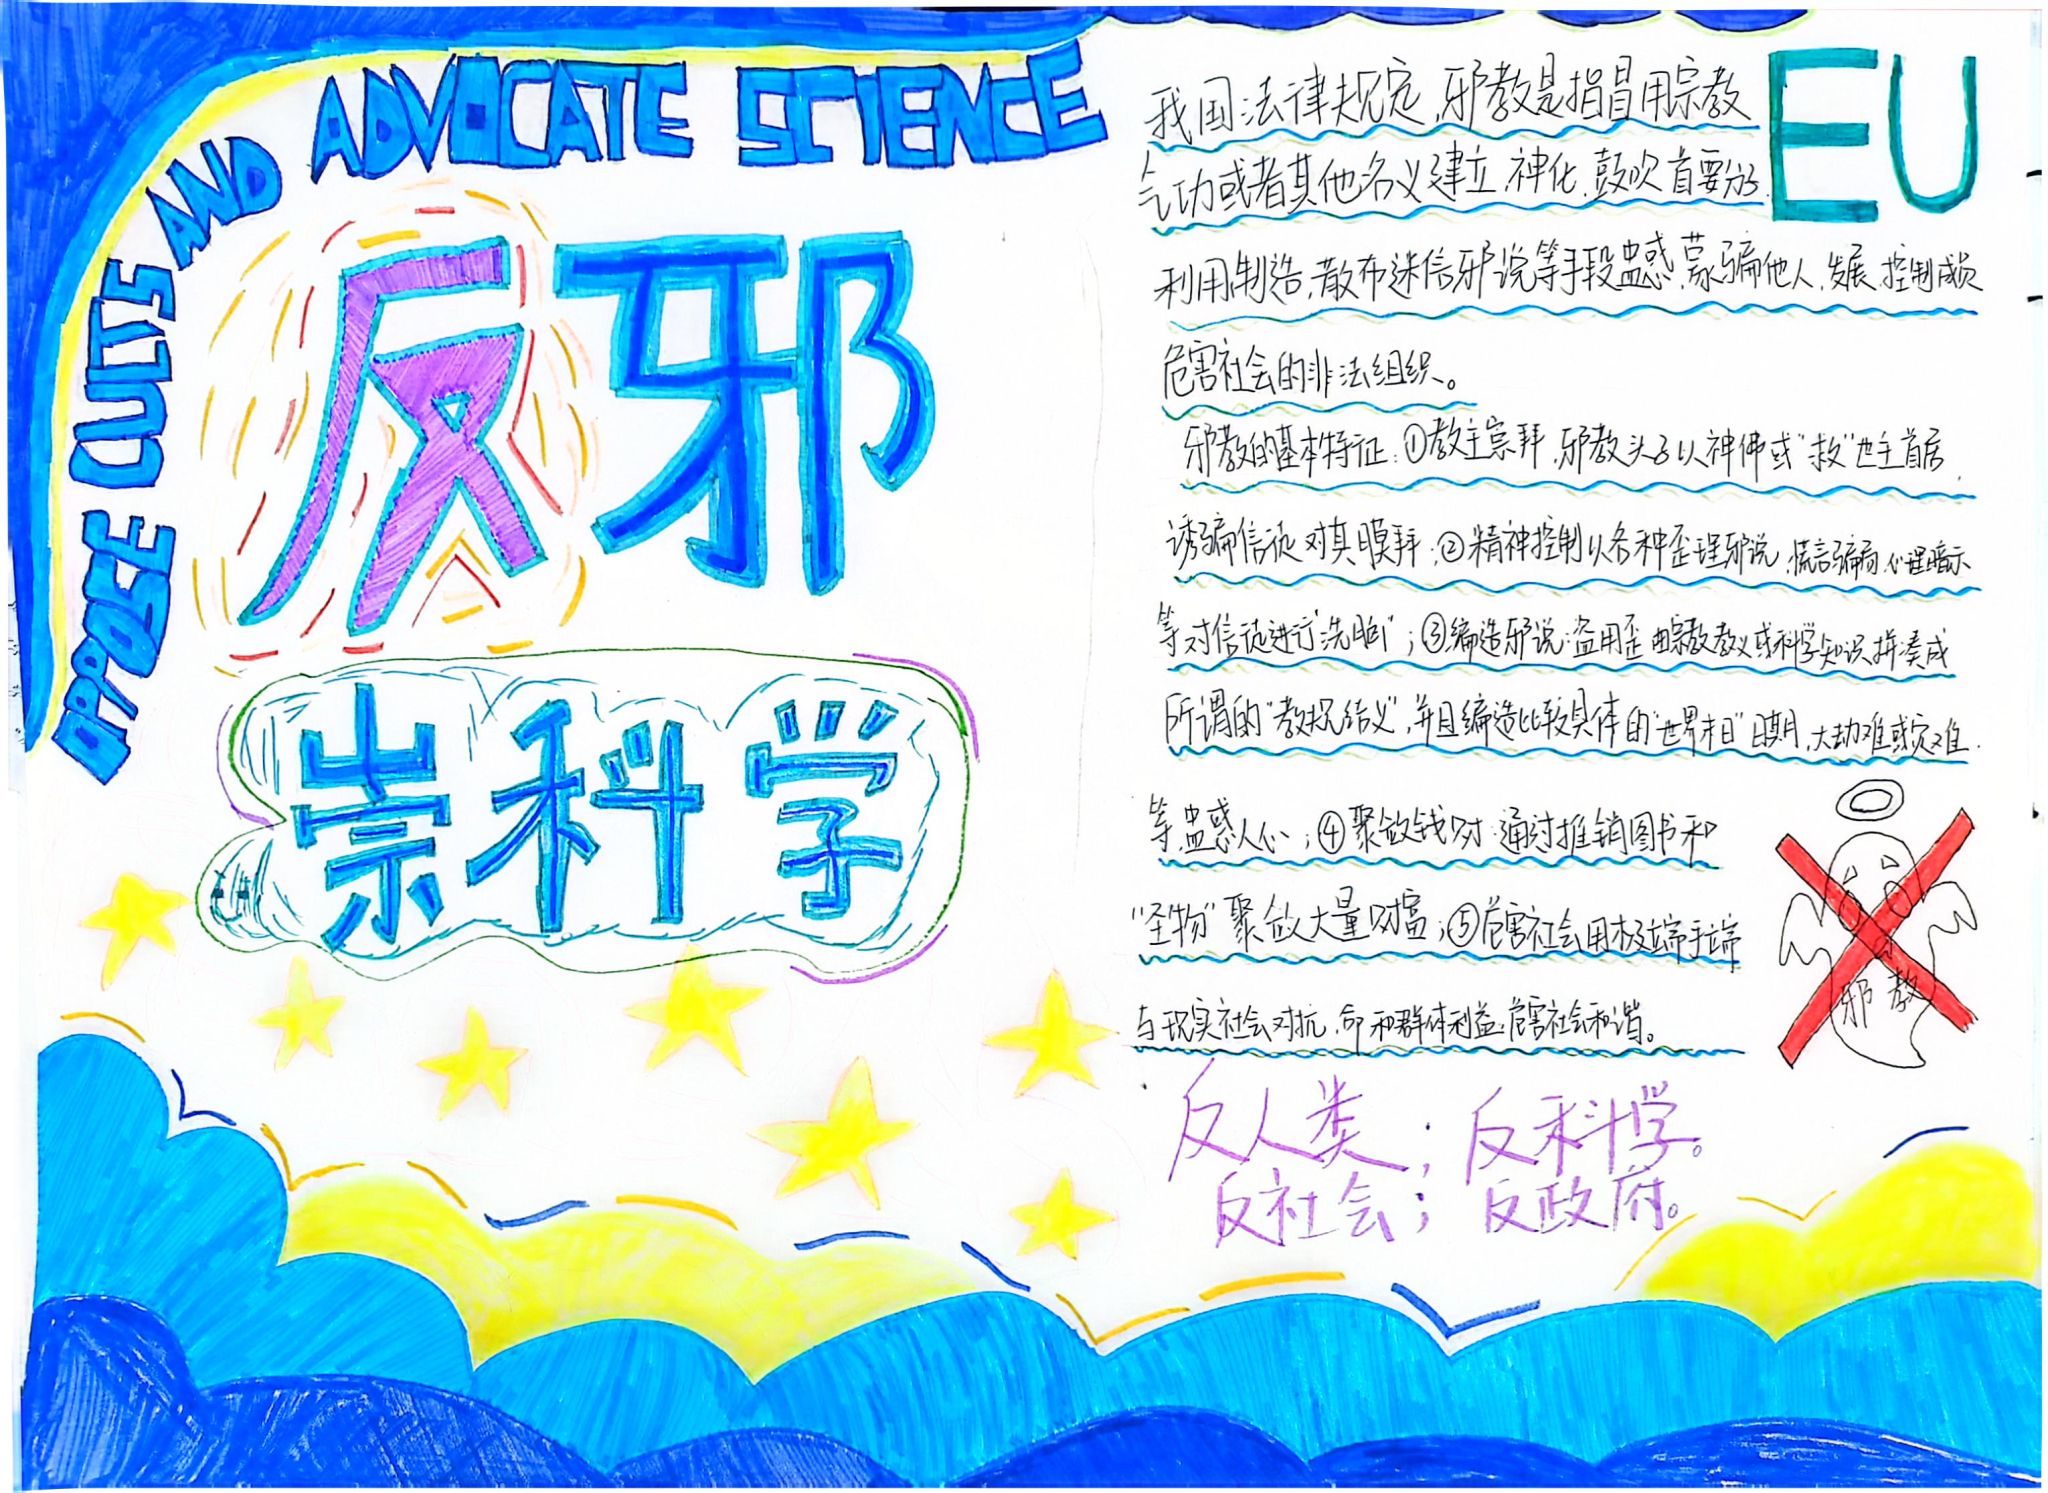 OPPOSE CULTS AND ADVOCATE SCIENCE
反邪
崇科学
EU
我国法律规定,邪教是指冒用宗教
气功或者其他名义建立,神化,鼓吹首要分子
利用制造,散布迷信邪说等手段蛊惑,蒙骗他人,发展,控制成员
危害社会的非法组织。
邪教的基本特征:①教主崇拜,邪教头子以神佛或"救"世主首居,
诱骗信徒对其膜拜;②精神控制以各种歪理邪说,慌言骗局,心理暗示
等对信徒进行"洗脑";③编造邪说:盗用歪曲宗教教义或科学知识,拼凑成
所谓的"教规结义",并且编造比较具体的"世界末日"日期,大劫难或灾难
等,蛊惑人心;④聚敛钱财:通过推销图书和
"圣物"聚敛大量财富;⑤危害社会用极端手端
与现实社会对抗,命和群体利益,危害社会和谐。
邪教
反人类;反科学。
反社会;反政府。